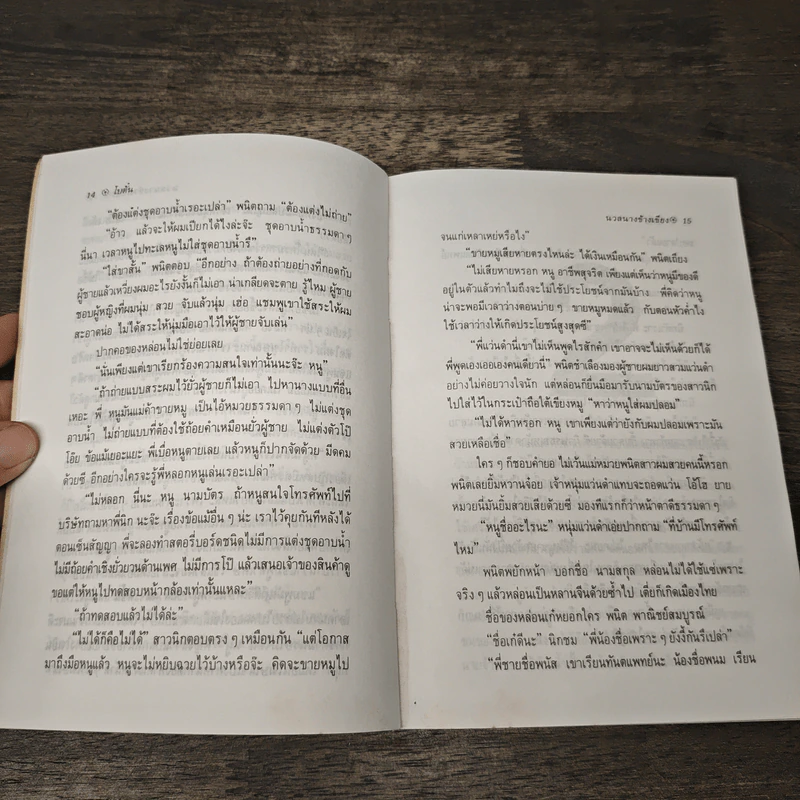 14 ๏ โบตั๋น
"ต้องแต่งชุดอาบน้ำเรอะเปล่า" พนิตถาม "ต้องแต่งไม่ถ่าย"
"อ้าว แล้วจะให้ผมเปียกได้ไงล่ะจ๊ะ ชุดอาบน้ำธรรมดาๆ
นี่นา เวลาหนูไปทะเลหนูไม่ใส่ชุดอาบน้ำรึ"
"ใส่ขาสั้น" พนิตตอบ "อีกอย่าง ถ้าต้องถ่ายอย่างที่กอดกับ
ผู้ชายแล้วเหวี่ยงผมอะไรยังงั้นก็ไม่เอา น่าเกลียดจะตาย รู้ไหม ผู้ชาย
ชอบผู้หญิงที่ผมนุ่ม สวย จับแล้วนุ่ม เฮ่อ แชมพูเขาใช้สระให้ผม
สะอาดน่อ ไม่ได้สระให้นุ่มมือเอาไว้ให้ผู้ชายจับเล่น"
ปากคอของหล่อนไม่ใช่ย่อยเลย
"นั่นเพียงแต่เขาเรียกร้องความสนใจเท่านั้นนะจ๊ะ หนู"
"ถ้าถ่ายแบบสระผมไว้ยั่วผู้ชายก็ไม่เอา ไปหานางแบบที่อื่น
เหอะ พี่ หนูมันแม่ค้าขายหมู เป็นไอ้หมวยธรรมดาๆ ไม่แต่งชุด
อาบน้ำ ไม่ถ่ายแบบที่ต้องใช้ถ้อยคำเหมือนยั่วผู้ชาย ไม่แต่งตัวโป๊
โอ๊ย ข้อแม้เยอะแยะ พี่เบื่อหนูตายเลย แล้วหนูก็ปากจัดด้วย มีดคม
ด้วยซี อีกอย่างใครจะรู้พี่หลอกหนูเล่นเรอะเปล่า"
"ไม่หลอก นี่นะ หนู นามบัตร ถ้าหนูสนใจโทรศัพท์ไปที่
บริษัทถามหาพี่นิก นะจ๊ะ เรื่องข้อแม้อื่นๆ น่ะ เราไว้คุยกันทีหลังได้
ตอนเซ็นสัญญา พี่จะลองทำสตอรี่บอร์ดชนิดไม่มีการแต่งชุดอาบน้ำ
ไม่มีถ้อยคำเชิงยั่วยวนด้านเพศ ไม่มีการโป๊ แล้วเสนอเจ้าของสินค้าดู
ขอแต่ให้หนูไปทดสอบหน้ากล้องเท่านั้นแหละ"
"ถ้าทดสอบแล้วไม่ได้ล่ะ"
"ไม่ได้ก็คือไม่ได้" สาวนิกตอบตรงๆ เหมือนกัน "แต่โอกาส
มาถึงมือหนูแล้ว หนูจะไม่หยิบฉวยไว้บ้างหรือจ๊ะ คิดจะขายหมูไป
นวลนางข้างเขียง ๏ 15
จนแก่เหลาเหย่หรือไง"
"ขายหมูเสียหายตรงไหนล่ะ ได้เงินเหมือนกัน" พนิตเถียง
"ไม่เสียหายหรอก หนู อาชีพสุจริต เพียงแต่เห็นว่าหนูมีของดี
อยู่ในตัวแล้วทำไมถึงจะไม่ใช้ประโยชน์จากมันบ้าง พี่คิดว่าหนู
น่าจะพอมีเวลาว่างตอนบ่ายๆ ขายหมูหมดแล้ว กับตอนหัวค่ำไง
ใช้เวลาว่างให้เกิดประโยชน์สูงสุดซี"
"พี่แว่นดำนี่เขาไม่เห็นพูดไรสักคำ เขาอาจจะไม่เห็นด้วยก็ได้
พี่พูดเองเออเองคนเดียวนี่" พนิตชำเลืองมองผู้ชายผมยาวสวมแว่นดำ
อย่างไม่ค่อยวางใจนัก แต่หล่อนก็ยื่นมือมารับนามบัตรของสาวนิก
ไปใส่ไว้ในกระเป๋าถือใต้เขียงหมู "หาว่าหนูใส่ผมปลอม"
"ไม่ได้หาหรอก หนู เขาเพียงแต่ว่ายังกับผมปลอมเพราะมัน
สวยเหลือเชื่อ"
ใครๆ ก็ชอบคำยอ ไม่เว้นแม้หมวยพนิตสาวผมสวยคนนี้หรอก
พนิตเลยยิ้มหวานจ๋อย เจ้าหนุ่มแว่นดำแทบจะถอดแว่น โอ้โฮ ยาย
หมวยนี่มันยิ้มสวยเสียด้วยซี มองทีแรกก็ว่าหน้าตาดีธรรมดาๆ
"หนูชื่ออะไรนะ" หนุ่มแว่นดำเอ่ยปากถาม "ที่บ้านมีโทรศัพท์
ไหม"
พนิตพยักหน้า บอกชื่อ นามสกุล หล่อนไม่ได้ใช้แซ่เพราะ
จริงๆ แล้วหล่อนเป็นหลานจีนด้วยซ้ำไป เตี่ยก็เกิดเมืองไทย
ชื่อของหล่อนเก๋หยอกใคร พนิต พาณิชย์สมบูรณ์
"ชื่อเก๋ดีนะ" นิกชม "พี่น้องชื่อเพราะๆ ยังงี้กันรึเปล่า"
"พี่ชายชื่อพนัส เขาเรียนทันตแพทย์นะ น้องชื่อพนม เรียน